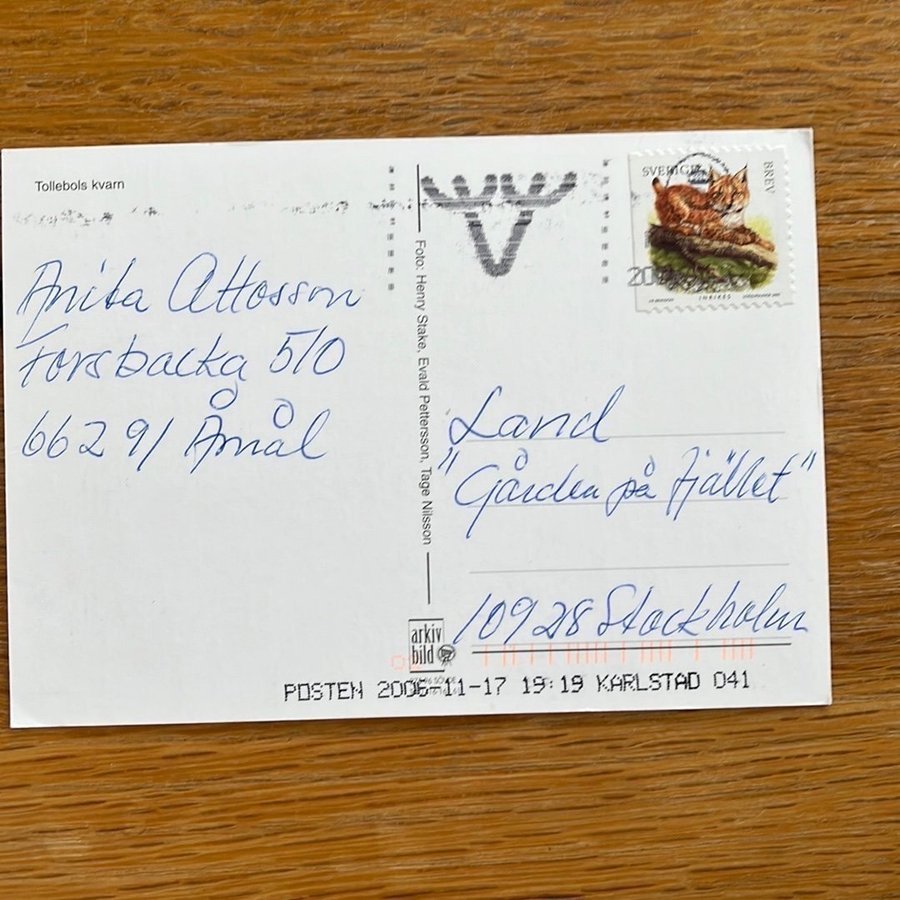 Tollebols kvarn
Anita Attosson
Forsbacka 510
662 91 Åmål
Foto: Henry Stake, Evald Pettersson, Tage Nilsson
arkiv
bild
SVERIGE
BREV
INRIKES
Land
"Gården på fjället"
109 28 Stockholm
POSTEN 2006-11-17 19:19 KARLSTAD 041